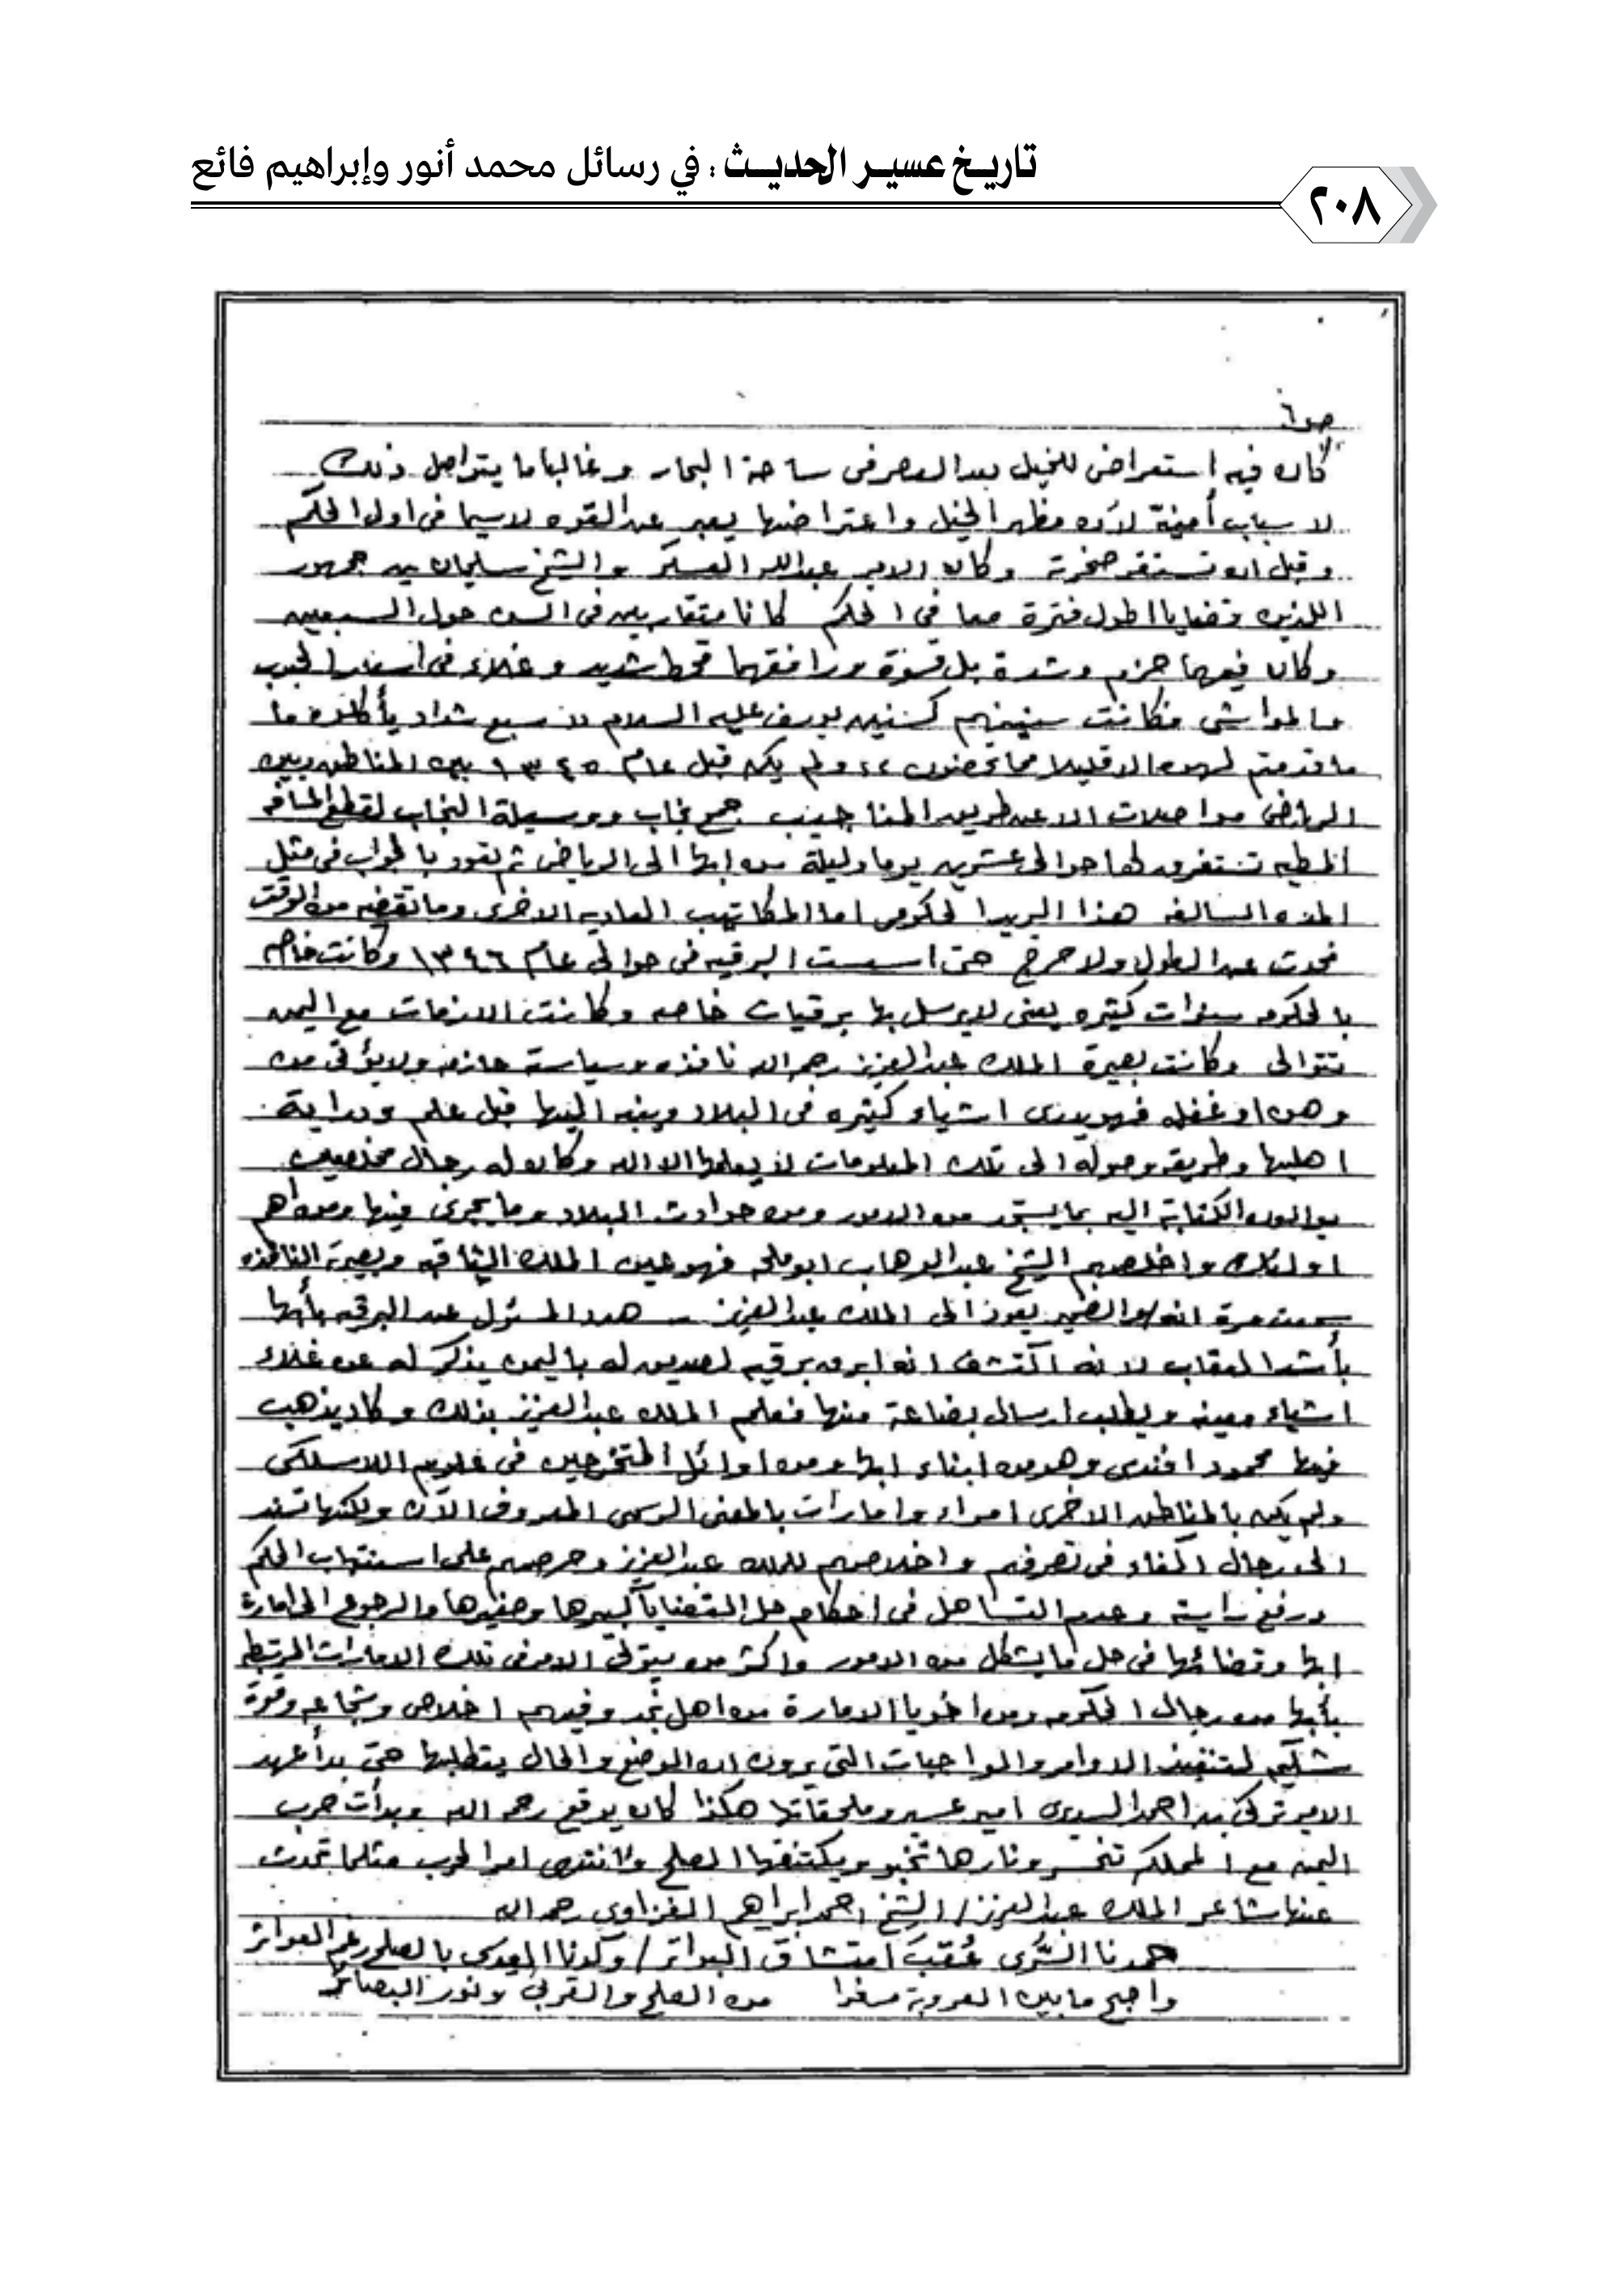 تاريخ عسير الحديث : في رسائل محمد أنور وإبراهيم فائع
٢٠٨
ص٦
كان فيه استعراض للخيل بعد العصر في ساحة البحار وغالبا ما يتواصل ذلك
لاسباب أمنية لأن مظهر الخيل واعتراضها يعبر عن القوه لاسيما في اول الحكم
وقبل ان تستقر صخرته وكان الامير عبدالله العسكر والشيخ سليمان بن جمهور
اللذين قضايا اطول فترة معا في الحكم كانا متقاربين في السن حول السبعين
وكان فيهما حزم وشدة بل قسوة ورافقهما قحط شديد وغلاء في اسعار الحبوب
والمواشي فكانت سنينهم كسنين يوسف عليه السلام سبع شداد يأكلون ما
ما قدمتم لهن الا قليلا مما تحصنون ،، ولم يكن قبل عام ١٣٤٥ بين المناطق وبين
الرياض مواصلات الا عن طريق المناجيب جمع نجاب ووسيلة النجاب لقطع المسافه
المطيه تستغرق لها حوالي عشرين يوما وليلة من ابها الى الرياض ثم تعود بالجواب في مثل
المده السالفه هذا البريد الحكومي اما المكاتيب العاديه الاخرى وما تقضيه من الوقت
فحدث عن الطول ولا حرج حتى اسست البرقيه في حوالي عام ١٣٤٦ وكانت خاصه
بالحكومه سنوات كثيره يعني لا يرسل بها برقيات خاصه وكانت الازمات مع اليمن
تتوالى وكانت بصيرة الملك عبدالعزيز رحمه الله نافذه وسياسة حازمه ولا يؤتى من
وهن او غفله فهو يدرى اشياء كثيره في البلاد وينبه اليها قبل علم ودراية
اهلها وطريقه وصوله الى تلك المعلومات لا يعلمها الا الله وكان له رجال مخلصين
يوالون الكتابة اليه بما يستجد من الامور ومن حوادث البلاد وما يجرى فيها ومن اهم
اولئك واخلصهم الشيخ عبدالوهاب ابوملحه فهو عين الملك الثاقبه وبصيرته النافذه
سمعت مرة انه والضمير يعود الى الملك عبدالعزيز - هدد المسئول عن البرقيه بأبها
بأشد العقاب لانه اكتشف انه ابرق برقيه لصديق له باليمن يذكر له عن غلاء
اشياء معينه ويطلب ارسال بضاعة منها فعلم الملك عبدالعزيز بذلك وكاد يذهب
فيها محمود افندى وهو من ابناء ابها ومن اوائل المتخرجين في علوم اللاسلكى
ولم يكن بالمناطق الاخرى امراء وامارات بالمعنى الرسمى المعروف الآن ولكنها تسند
الى رجال اكفاء في تصرفهم واخلاصهم للملك عبدالعزيز وحرصهم على استتباب الحكم
ورفع راية وعدم التساهل في احكام حل القضايا كبيرها وصغيرها والرجوع الى امارة
ابها وقضائها في حل ما يشكل من الامور واكثر من يتولى الامر في تلك الامارات المرتبطه
بأبها من رجال الحكومه ومن اخويا الامارة من اهل نجد وفيهم اخلاص وشجاعه وقوة
شكيمه لتنفيذ الاوامر والواجبات التي يرون ان الوضع والحال يتطلبها حتى بدأ عهد
الامير تركي بن احمد السديرى امير عسير وملحقاتها هكذا كان يوقع رحمه الله وبدأت حرب
اليمن مع المملكه تنحسر ونارها تخبو ويكتنفها الصلح وانتهى امر الحرب مثلما تحدث
عنها شاعر الملك عبدالعزيز / الشيخ احمد ابراهيم الغزاوى رحمه الله
حمدنا السُّرى عُقب امتشاق البواتر / وكدنا العدى بالصلح رغم العواثر
واصبح ما بين العروبة مسفرا من الصلح والقربى ونور البصائر